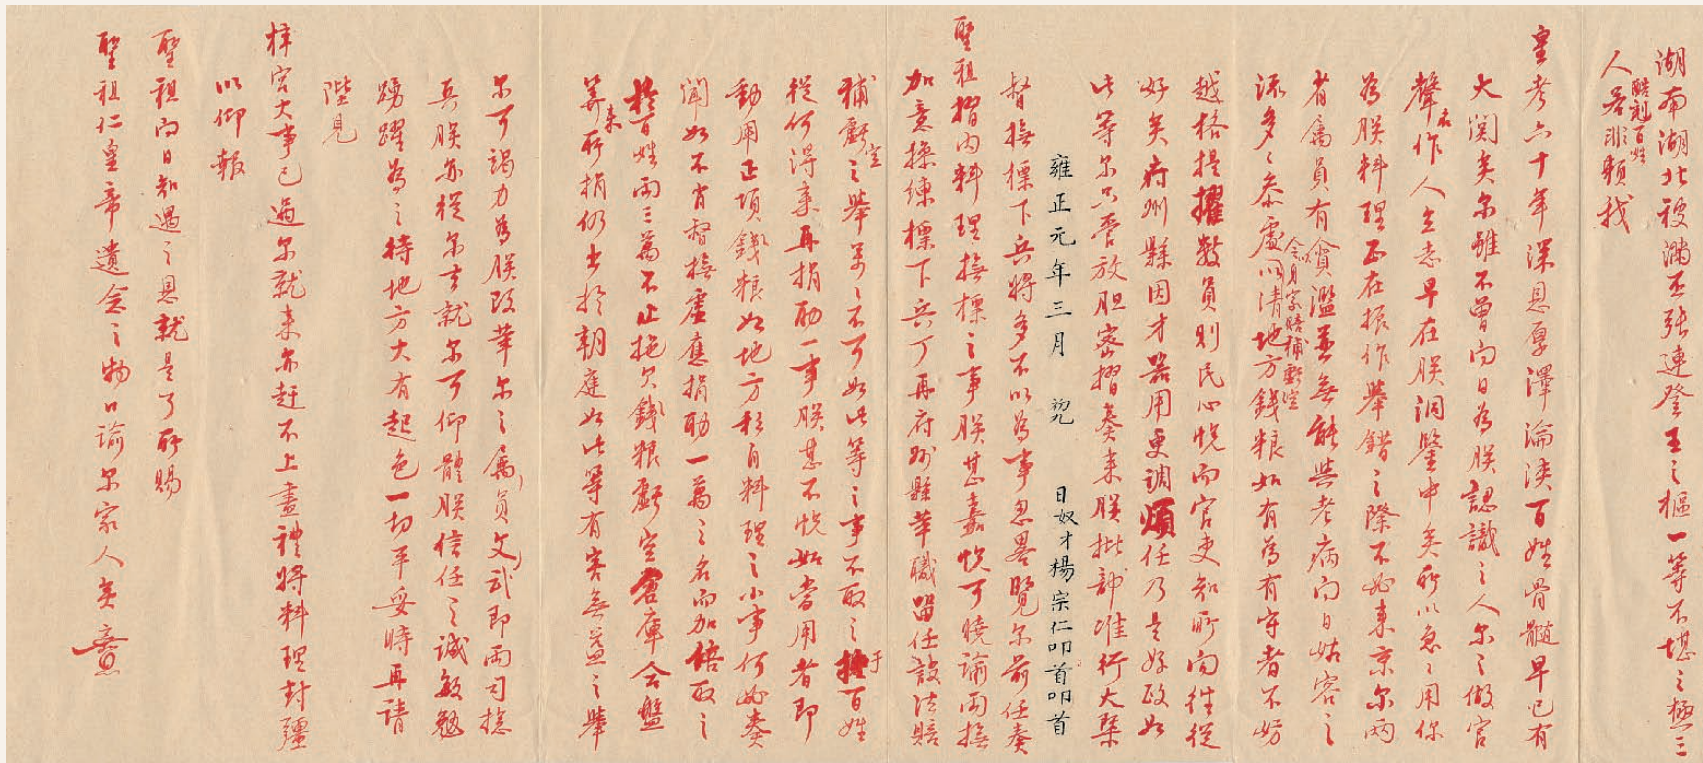 湖南湖北被滿丕張連登王之樞一等不堪之極三
人酷剋百姓若非賴我
皇考六十年深恩厚澤淪浹百姓骨髓早已有
大関矣尔雖不曾向日為朕認識之人尔之做官
聲名作人立志早在朕洞鑒中矣所以急急用你
為朕料理正在振作舉錯之際不必来京尔两
省属員有貪濫並無能與老病向日姑容之
流多多叅處令身家賠補虧空以清地方錢粮如有為有守者不妨
越格提擢數員則民心悅而官吏知所向徃從
好矣府州縣因才器用更調煩任乃是好政如
此等尔只管放胆密摺奏来朕批部准行大槩
雍正元年三月 初九 日奴才楊宗仁叩首叩首
督撫標下兵將多不以為事忽畧覽尔前任奏
聖祖摺内料理撫標之事朕甚嘉悅可曉諭两撫
加意操練標下兵丁再府州縣革職留任設法賠
補虧空之舉萬萬不可如此等之事不取之于百姓
從何得来再捐助一事朕甚不悅如當用者即
動用正項錢粮如地方私自料理之小事何必奏
聞如不肖督撫虚應捐助一萬之名而加倍取之
於百姓两三萬不止拖欠錢粮虧空倉庫合盤
筭来所捐仍出於朝庭如此等有害無益之舉
尔可竭力為朕改革尔之属員文武即两司總
兵朕亦從尔去就尔可仰體朕信任之誠敏勉
踴躍為之待地方大有起色一切平妥時再請
陛見
梓宮大事已過尔就来亦赶不上盡禮將料理封疆
以仰報
聖祖向日知遇之恩就是了所賜
聖祖仁皇帝遺念之物口諭尔家人矣